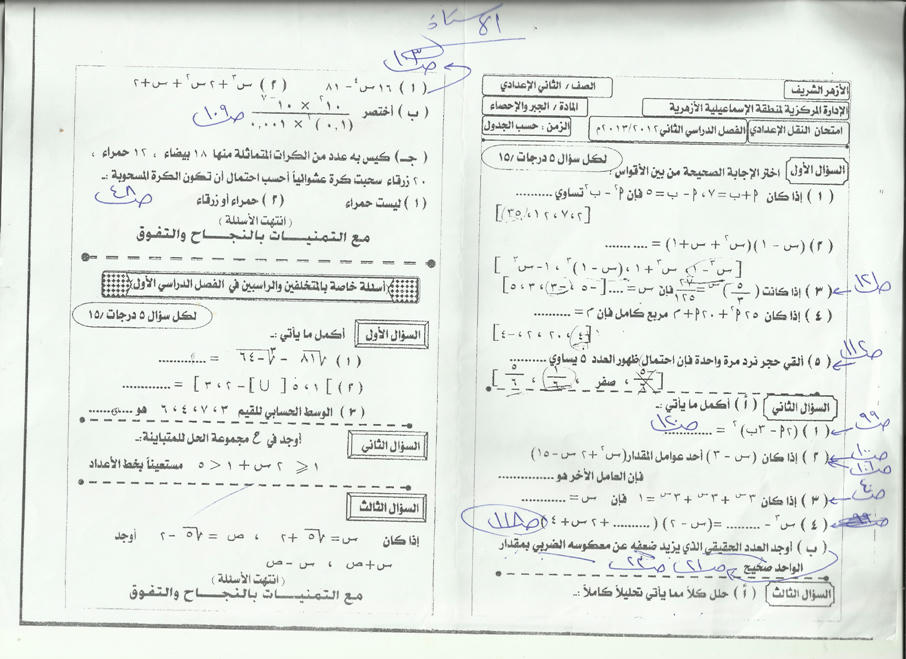 الأستاذ
الأزهر الشريف
الصف / الثاني الإعدادي
الإدارة المركزية لمنطقة الإسماعيلية الأزهرية
المادة / الجبر والإحصاء
امتحان النقل الإعدادي
الفصل الدراسي الثاني ٢٠١٣/٢٠١٢م
الزمن : حسب الجدول
لكل سؤال ٥ درجات /١٥
السؤال الأول
اختر الإجابة الصحيحة من بين الأقواس :
( ١ ) إذا كان م + ب = ٧ ، م - ب = ٥ فإن م٢ - ب٢ تساوي ..........
[ ٢ ، ٧ ، ١٢ ، ٣٥ ]
( ٢ ) (س - ١) (س٢ + س + ١) = ..........
[ س٣ - ١ ، س٣ + ١ ، (س - ١)٣ ، ١ - س٣ ]
( ٣ ) إذا كانت (٥/٣)س = ٢٧/١٢٥ فإن س = .... [ -٥ ، -٣ ، ٣ ، ٥ ]
ص١٢
( ٤ ) إذا كان ٢٥ م٢ + ٢٠ م + م مربع كامل فإن م = ........
[ ٤ ، ٢٠ ، ٢ ، -٤ ]
( ٥ ) ألقي حجر نرد مرة واحدة فإن احتمال ظهور العدد ٥ يساوي ..........
ص١١٢
[ ٥/٦ ، صفر ، ١/٦ ، ٥/٦ ]
السؤال الثاني
( أ ) أكمل ما يأتي :ـ
( ١ ) (٢م - ٣ب)٢ = ..........
ص٩٩
ص١٢٠
( ٢ ) إذا كان (س - ٣) أحد عوامل المقدار (س٢ + ٢س - ١٥)
ص١٠٠
ص١٠٦
فإن العامل الأخر هو ..........
( ٣ ) إذا كان ٣س + ٣س + ٣س = ١ فإن س = ..........
ص٤٠
( ٤ ) س٣ - ........ = (س - ٢) (........ + ٢س + ٤)
ص١١٨
( ب ) أوجد العدد الحقيقي الذي يزيد ضعفه عن معكوسه الضربي بمقدار
الواحد صحيح
ص٢١
ص٢٣
السؤال الثالث
( أ ) حلل كلاً مما يأتي تحليلاً كاملاً :ـ
ص١٠٣
( ١ ) ١٦س٤ - ٨١
( ٢ ) س٣ + ٢س٢ + س + ٢
( ب ) أختصر ١٠٢ × ١٠-٧ / (٠,١)١ × ٠,٠٠١
ص١٠٩
( جـ ) كيس به عدد من الكرات المتماثلة منها ١٨ بيضاء ، ١٢ حمراء ،
٢٠ زرقاء سحبت كرة عشوائياً أحسب احتمال أن تكون الكرة المسحوبة :ـ
( ١ ) ليست حمراء
( ٢ ) حمراء أو زرقاء
ص٤٨
( انتهت الأسئلة )
مع التمنيات بالنجاح والتفوق
أسئلة خاصة بالمتخلفين والراسبين في الفصل الدراسي الأول
لكل سؤال ٥ درجات /١٥
السؤال الأول
أكمل ما يأتي :ـ
( ١ ) √٨١ - ٣√-٦٤ = ..........
( ٢ ) ] ١ ، ٥ [ U ] - ٢ ، ٣ [ = ..........
( ٣ ) الوسط الحسابي للقيم ٣ ، ٧ ، ٤ ، ٦ هو ..........
السؤال الثاني
أوجد في ح مجموعة الحل للمتباينة :ـ
١ ≤ ٢س + ١ < ٥ مستعيناً بخط الأعداد
السؤال الثالث
إذا كان س = √٥ + ٢ ، ص = √٥ - ٢ أوجد
س + ص ، س - ص
( انتهت الأسئلة )
مع التمنيات بالنجاح والتفوق